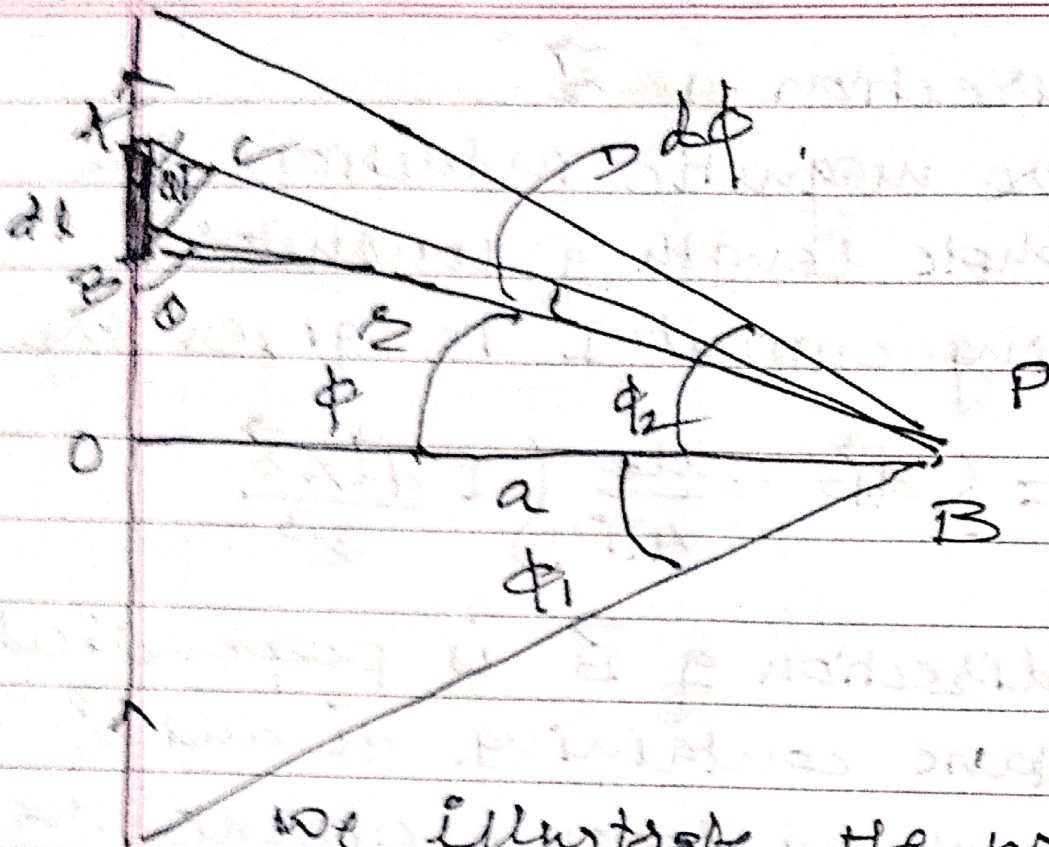 dϕ
A
C
dl
B
θ
r
ϕ
ϕ2
P
O
a
B
ϕ1
we illustrate the